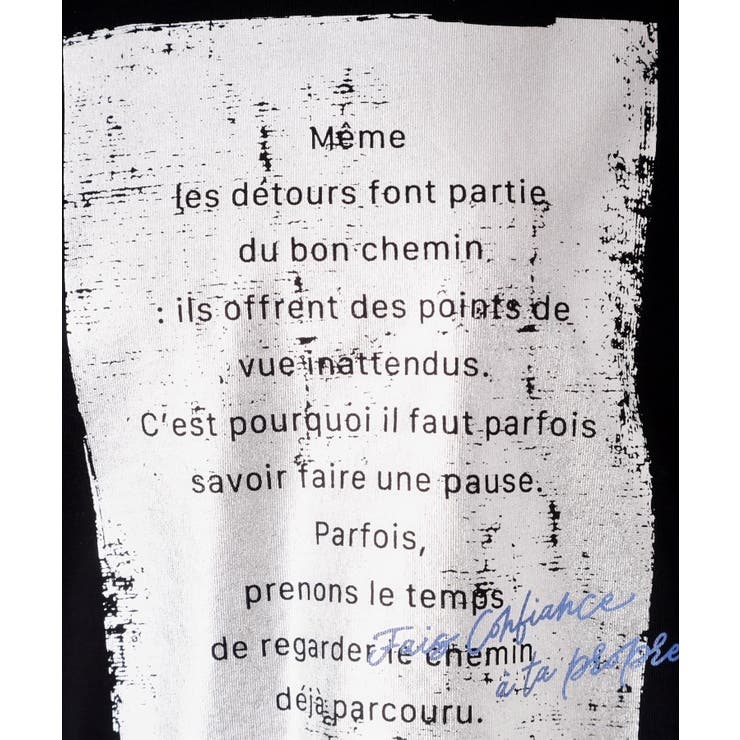 Même
les détours font partie
du bon chemin
: ils offrent des points de
vue inattendus.
C'est pourquoi il faut parfois
savoir faire une pause.
Parfois,
prenons le temps
de regarder le chemin
déjà parcouru.
Fais Confiance
à ta propre